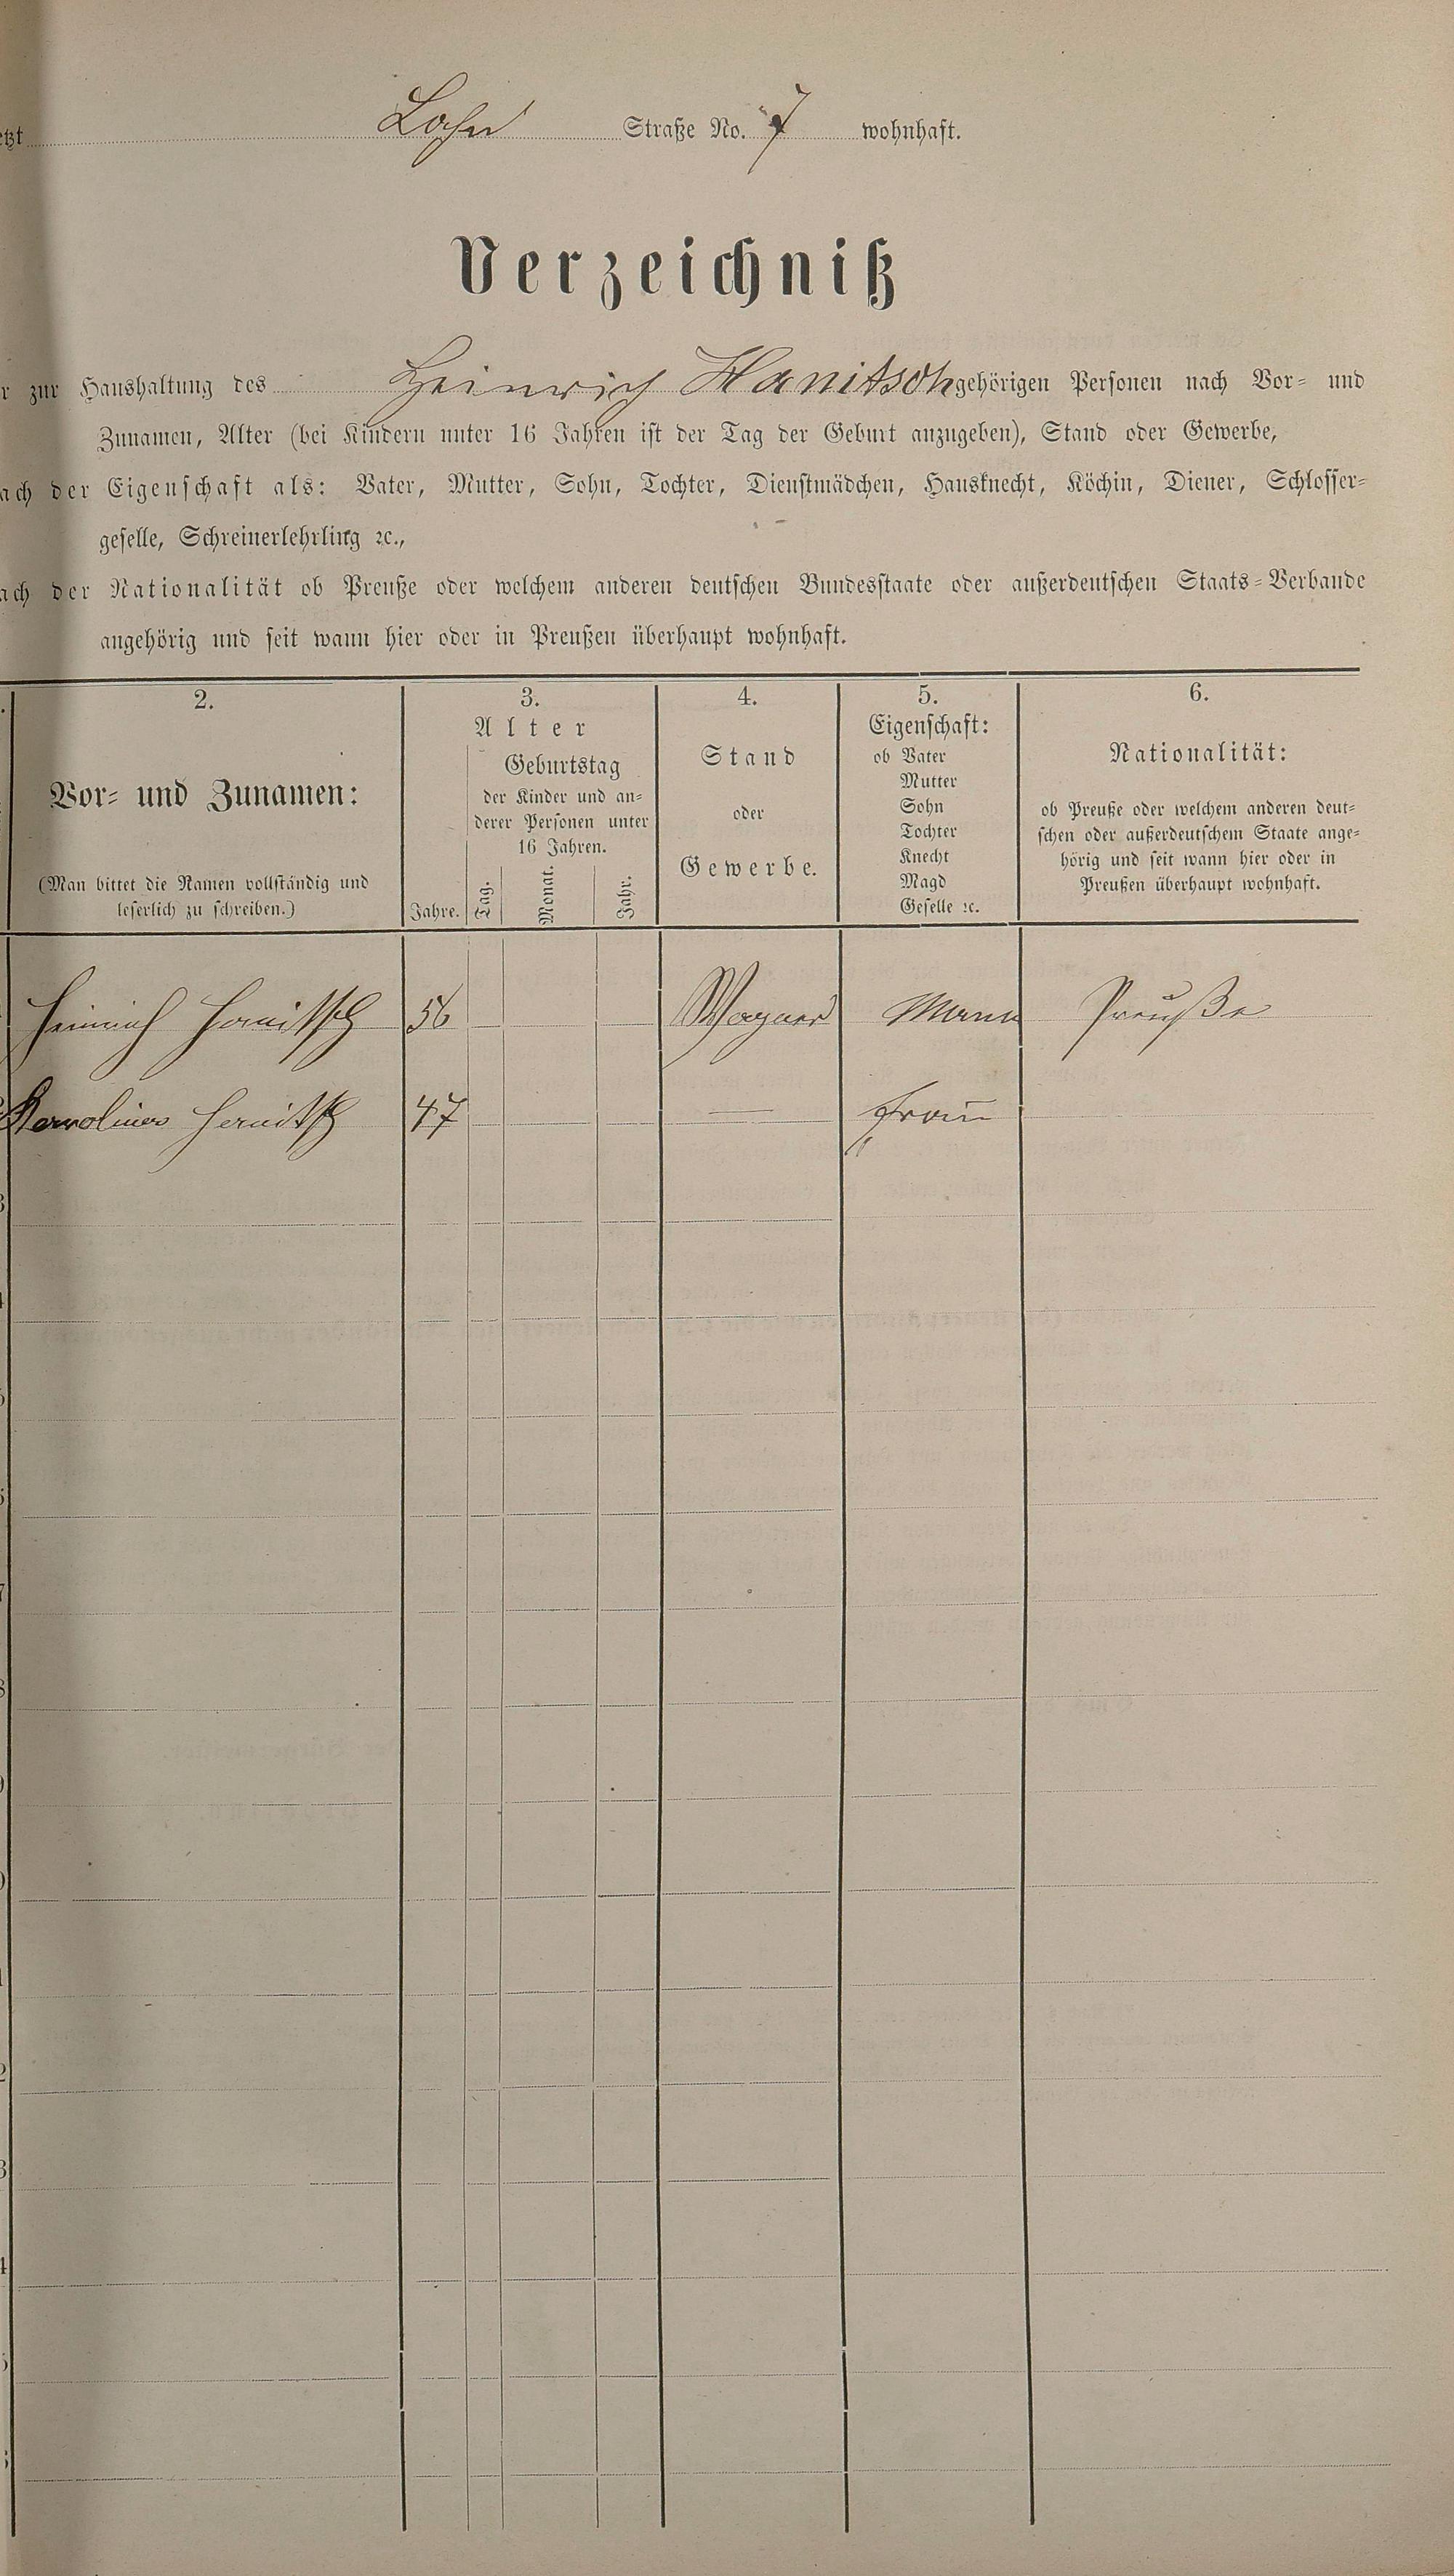 etzt Lahn Straße No. 7 wohnhaft.
Verzeichniß
r zur Haushaltung des Heinrich Hanitsch gehörigen Personen nach Vor- und
Zunamen, Alter (bei Kindern unter 16 Jahren ist der Tag der Geburt anzugeben), Stand oder Gewerbe,
ach der Eigenschaft als: Vater, Mutter, Sohn, Tochter, Dienstmädchen, Hausknecht, Köchin, Diener, Schlosser-
geselle, Schreinerlehrling ꝛc.,
ach der Nationalität ob Preuße oder welchem anderen deutschen Bundesstaate oder außerdeutschen Staats-Verbande
angehörig und seit wann hier oder in Preußen überhaupt wohnhaft.
2.
Vor- und Zunamen:
(Man bittet die Namen vollständig und
leserlich zu schreiben.)
3.
Alter
Geburtstag
der Kinder und an-
derer Personen unter
16 Jahren.
Jahre.
Tag.
Monat.
Jahr.
4.
Stand
oder
Gewerbe.
5.
Eigenschaft:
ob Vater
Mutter
Sohn
Tochter
Knecht
Magd
Geselle ꝛc.
6.
Nationalität:
ob Preuße oder welchem anderen deut-
schen oder außerdeutschem Staate ange-
hörig und seit wann hier oder in
Preußen überhaupt wohnhaft.
Heinrich Hanitsch 56 Wagner Mann Preuße
Karoline Hanitsch 47 — Frau
3
4
5
6
7
8
9
0
1
2
3
4
5